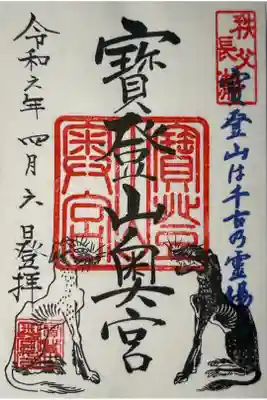 秩父
長瀞
宝登山は千古乃霊場
寳登山奥宮
寳登山
奥宮
令和六年四月六日登拝